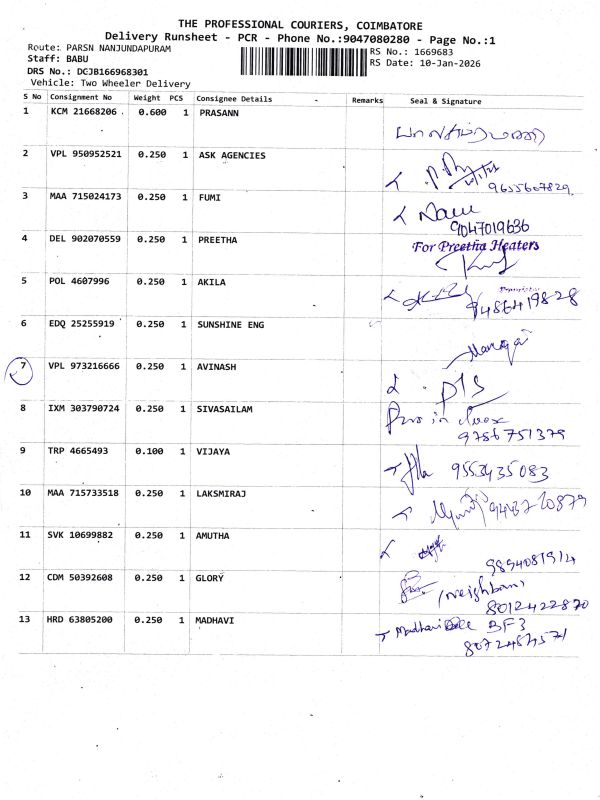 THE PROFESSIONAL COURIERS, COIMBATORE
Delivery Runsheet - PCR - Phone No.:9047080280 - Page No.:1
Route: PARSN NANJUNDAPURAM
RS No.: 1669683
Staff: BABU
RS Date: 10-Jan-2026
DRS No.: DCJB166968301
Vehicle: Two Wheeler Delivery
S No Consignment No Weight PCS Consignee Details - Remarks Seal & Signature
1 KCM 21668206 0.600 1 PRASANN
2 VPL 950952521 0.250 1 ASK AGENCIES
9655607829
3 MAA 715024173 0.250 1 FUMI
9047019636
4 DEL 902070559 0.250 1 PREETHA
For Preetha Heaters
5 POL 4607996 0.250 1 AKILA
9486419828
6 EDQ 25255919 0.250 1 SUNSHINE ENG
7 VPL 973216666 0.250 1 AVINASH
8 IXM 303790724 0.250 1 SIVASAILAM
9786751379
9 TRP 4665493 0.100 1 VIJAYA
9553435083
10 MAA 715733518 0.250 1 LAKSMIRAJ
9443720879
11 SVK 10699882 0.250 1 AMUTHA
9894081914
12 CDM 50392608 0.250 1 GLORY
(neighbour)
8012422870
13 HRD 63805200 0.250 1 MADHAVI
Madhavi BF3
8072484571